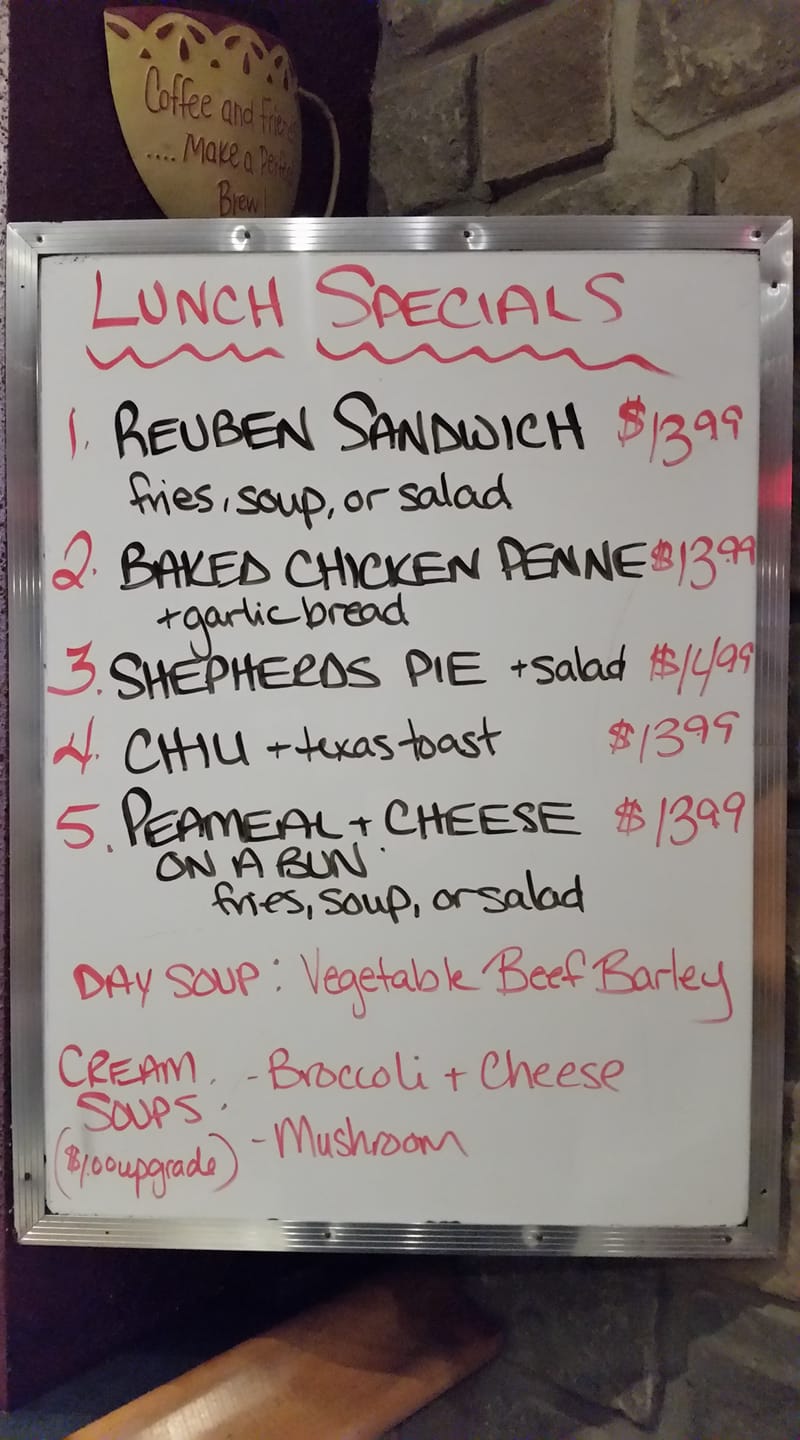 Coffee and
.... Make a
Brew!
LUNCH SPECIALS
1. REUBEN SANDWICH $13.99
fries, soup, or salad
2. BAKED CHICKEN PENNE $13.99
+ garlic bread
3. SHEPHERDS PIE + salad $14.99
4. CHILI + texas toast $13.99
5. PEAMEAL + CHEESE $13.99
ON A BUN
fries, soup, or salad
DAY SOUP: Vegetable Beef Barley
CREAM - Broccoli + Cheese
SOUPS:
- Mushroom
($1.00 upgrade)